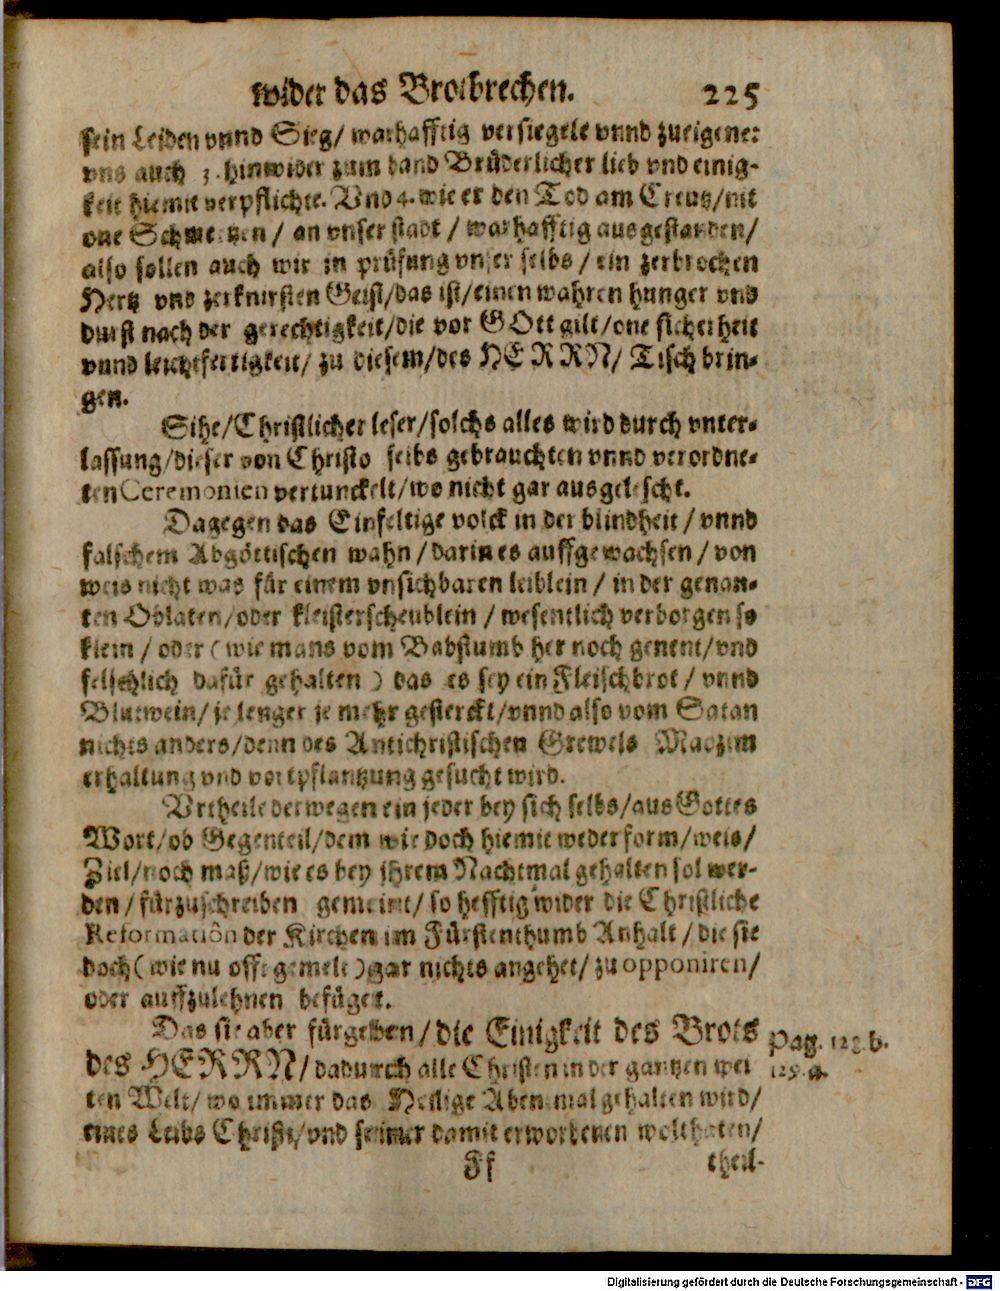 wider das Brotbrechen. 225
sein Leiden vnnd Sieg/ warhafftig versiegele vnnd zueigene:
vns auch 3. hinwider zum band Brüderlicher lieb vnd einig-
keit hiemit verpflichte. Vnd 4. wie er den Tod am Creutz/nit
one Schmertzen/ an vnser stadt / warhafftig ausgestanden/
also sollen auch wir in prüfung vnser selbs / ein zerbrochen
Hertz vnd zerknirsten Geist/das ist/einen wahren hunger vnd
durst nach der gerechtigkeit/die vor GOtt gilt/one sicherheit
vnnd leichtfertigkeit/ zu diesem/des HERRN/ Tisch brin-
gen.
Sihe/Christlicher leser/solchs alles wird durch vnter-
lassung/dieser von Christo selbs gebrauchten vnnd verordne-
ten Ceremonien vertunckelt/wo nicht gar ausgelescht.
Dagegen das Einfeltige volck in der blindheit / vnnd
falschem Abgöttischen wahn / darin es auffgewachsen / von
weis nicht was für einem vnsichbaren leiblein / in der genan-
ten Oblaten/oder kleisterscheublein / wesentlich verborgen so
klein / oder ( wie mans vom Babstumb her noch genent/vnd
felschlich dafür gehalten ) das es sey ein Fleischbrot / vnnd
Blutwein/ je lenger je mehr gesterckt/vnnd also vom Satan
nichts anders/denn des Antichristischen Grewels Maozim
erhaltung vnd vortpflantzung gesucht wird.
Vrtheile derwegen ein jeder bey sich selbs/aus Gottes
Wort/ob Gegenteil/dem wir doch hiemit weder form/weis/
Ziel/noch maß/wie es bey ihrem Nachtmal gehalten sol wer-
den / fürzuschreiben gemeint/ so hefftig wider die Christliche
Reformatiõn der Kirchen im Fürstenthumb Anhalt / die sie
doch ( wie nu offt gemelt ) gar nichts angehet/ zu opponiren/
oder auffzulehnen befüget.
Das sie aber fürgeben/ die Einigkeit des Brots
des HERRN/ dadurch alle Christen in der gantzen wei
ten Welt/ wo immer das Heilige Abendmal gehalten wird/
eines Leibs Christi/vnd seiner damit erworbenen wolthaten/
Pag. 123. b.
125. a.
Ff theil-
Digitalisierung gefördert durch die Deutsche Forschungsgemeinschaft - DFG